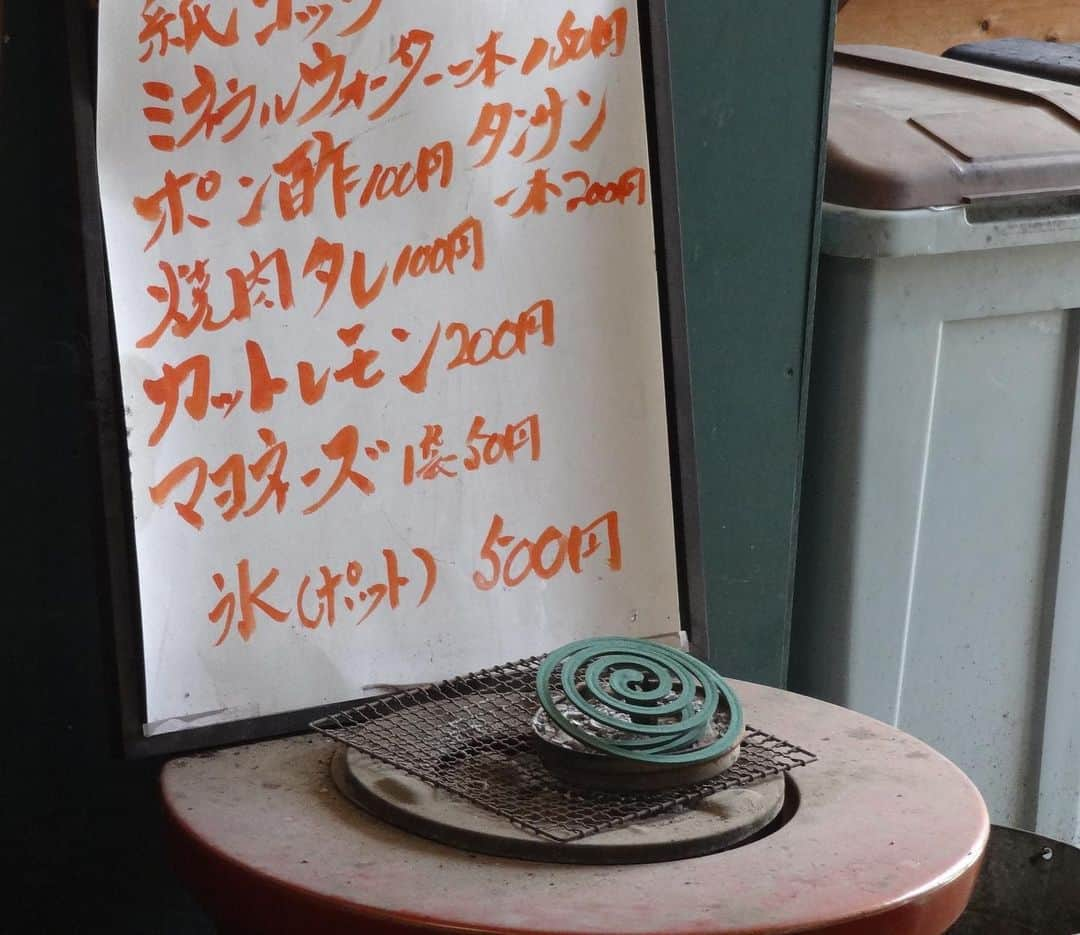 紙コップ
ミネラルウォーター 一本 150円
ポン酢 100円 タンサン
一本 200円
焼肉タレ 100円
カットレモン 200円
マヨネーズ 1袋 50円
氷(ポット) 500円